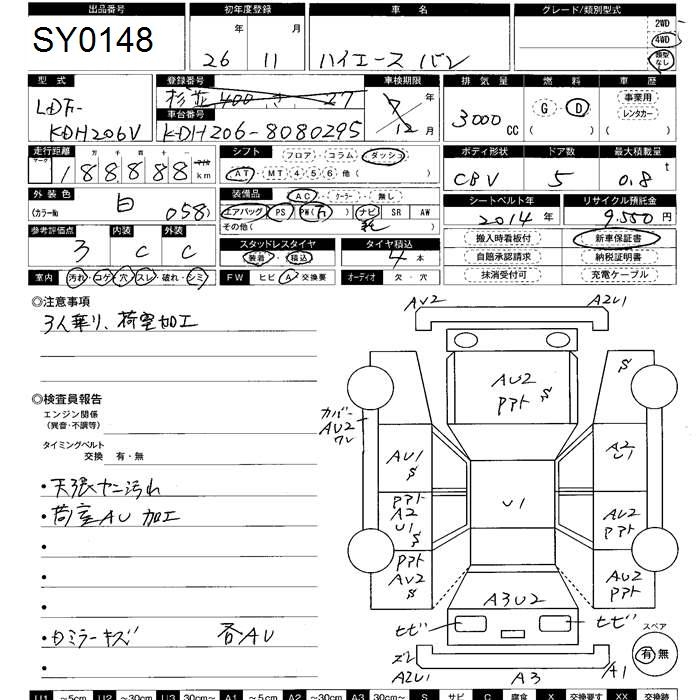 出品番号 初年度登録 車名 グレード/類別型式
SY0148 26年 11月 ハイエース バン 2WD 4WD 類型なし
型式 登録番号 車検期限 排気量 燃料 車歴
LDF- 杉並 400 き 27 年 事業用
KDH206V 車台番号 KDH206-8080295 12月 3000cc G D ( ) レンタカー ( )
走行距離 シフト フロア・コラム・ダッシュ ボディ形状 ドア数 最大積載量
十万 千 百 十 km AT・MT 4 5 6 他( ) CBV 5 0.8t
外装色 装備品 AC・クーラー・無し シートベルト年 リサイクル預託金
(カラーNo 白 058) エアバッグ PS PW ナビ SR AW 2014年 9,550円
その他( ) 搬入時看板付 新車保証書
参考評価点 内装 外装 スタッドレスタイヤ タイヤ積込 自賠承諾請求 納税証明書
3 C C 装着・積込 4本 抹消受付可 充電ケーブル
室内 汚れ・コゲ・穴・スレ・破れ・シミ FW ヒビ A 交換要 オーディオ 欠・穴
◎注意事項
3人乗り、荷室加工
◎検査員報告
エンジン関係
(異音・不調等)
タイミングベルト
交換 有・無
・天張ヤニ汚れ
・荷室AU 加工
AV2 A2U1
AU2
カバー
AU2
ワレ
AU1
A2
U1
U1
A2
U1
AU2
AU2
A3U2
ヒビ ヒビ
スペア
有 無
A2U1 A3 A1
U1 ~5cm U2 ~30cm U3 30cm~ A1 ~5cm A2 ~30cm A3 30cm~ S サビ C 腐食 X 交換要す XX 交換跡